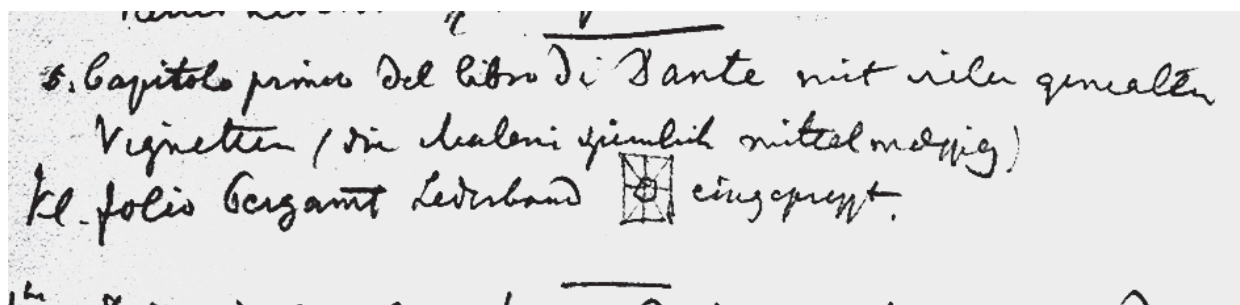 5. Capitolo primo del libro di Dante mit vielen gemalten
Vignetten (die Malerei ziemlich mittelmässig)
kl. folio Pergamt Lederband eingepresst.